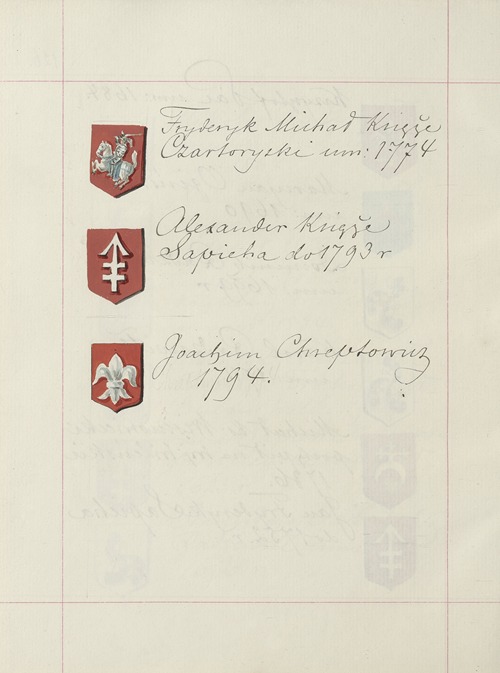 Fryderyk Michał Książe
Czartoryski um: 1774
Alexander Książe
Sapieha do 1793 r
Joachim Chreptowicz
1794.